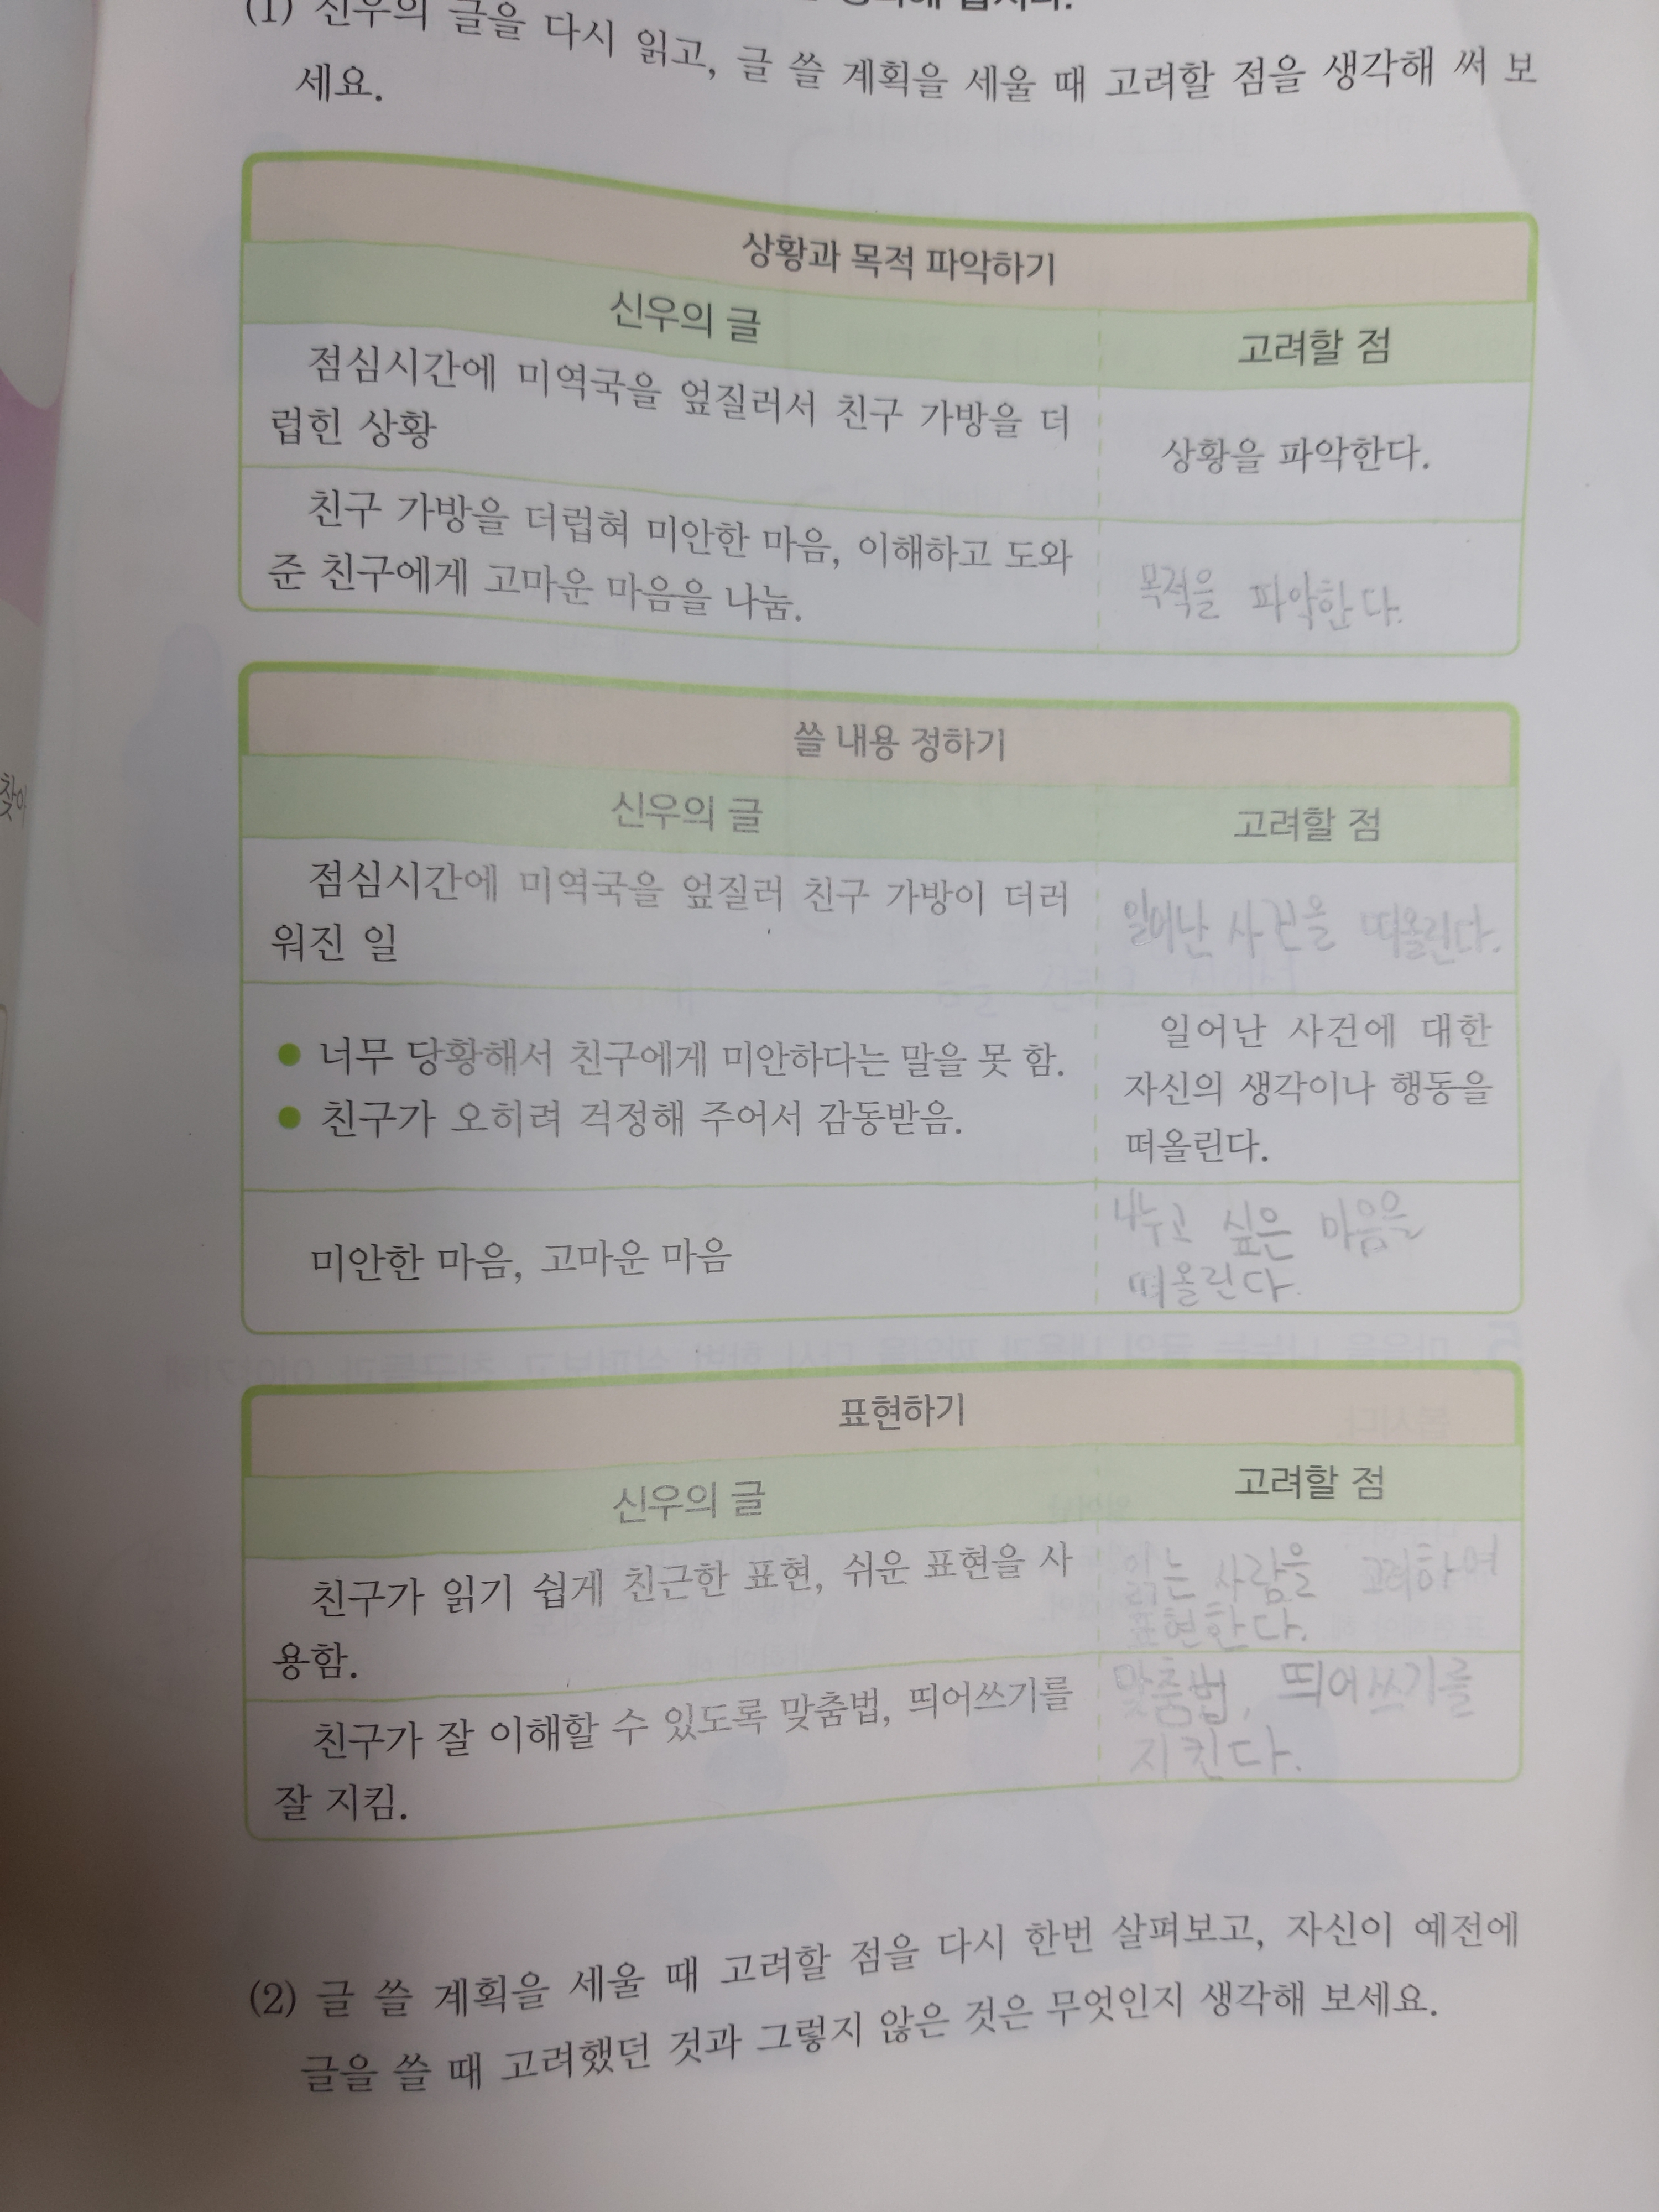 (1) 신우의 글을 다시 읽고, 글 쓸 계획을 세울 때 고려할 점을 생각해 써 보
세요.
상황과 목적 파악하기
신우의 글
고려할 점
점심시간에 미역국을 엎질러서 친구 가방을 더
럽힌 상황
상황을 파악한다.
친구 가방을 더럽혀 미안한 마음, 이해하고 도와
준 친구에게 고마운 마음을 나눔.
목적을 파악한다.
쓸 내용 정하기
신우의 글
고려할 점
점심시간에 미역국을 엎질러 친구 가방이 더러
워진 일
일어난 사건을 떠올린다.
● 너무 당황해서 친구에게 미안하다는 말을 못 함.
● 친구가 오히려 걱정해 주어서 감동받음.
일어난 사건에 대한
자신의 생각이나 행동을
떠올린다.
미안한 마음, 고마운 마음
나누고 싶은 마음을
떠올린다.
표현하기
신우의 글
고려할 점
친구가 읽기 쉽게 친근한 표현, 쉬운 표현을 사
용함.
읽는 사람을 고려하여
표현한다.
친구가 잘 이해할 수 있도록 맞춤법, 띄어쓰기를
잘 지킴.
맞춤법, 띄어쓰기를
지킨다.
(2) 글 쓸 계획을 세울 때 고려할 점을 다시 한번 살펴보고, 자신이 예전에
글을 쓸 때 고려했던 것과 그렇지 않은 것은 무엇인지 생각해 보세요.